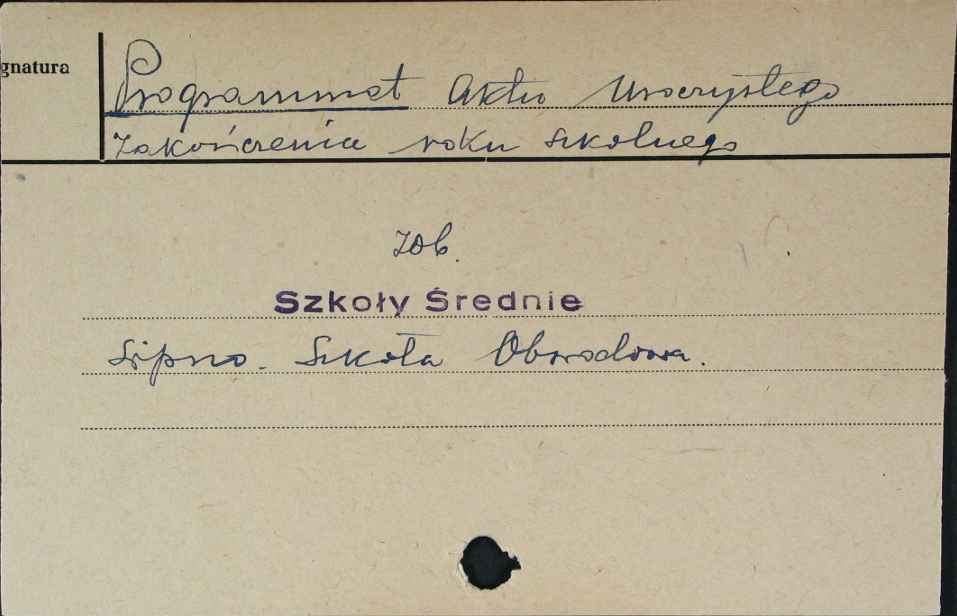 gnatura
Programmat Aktu Uroczystego
zakończenia roku szkolnego
zob.
Szkoły Średnie
Lipno. Szkoła Obwodowa.